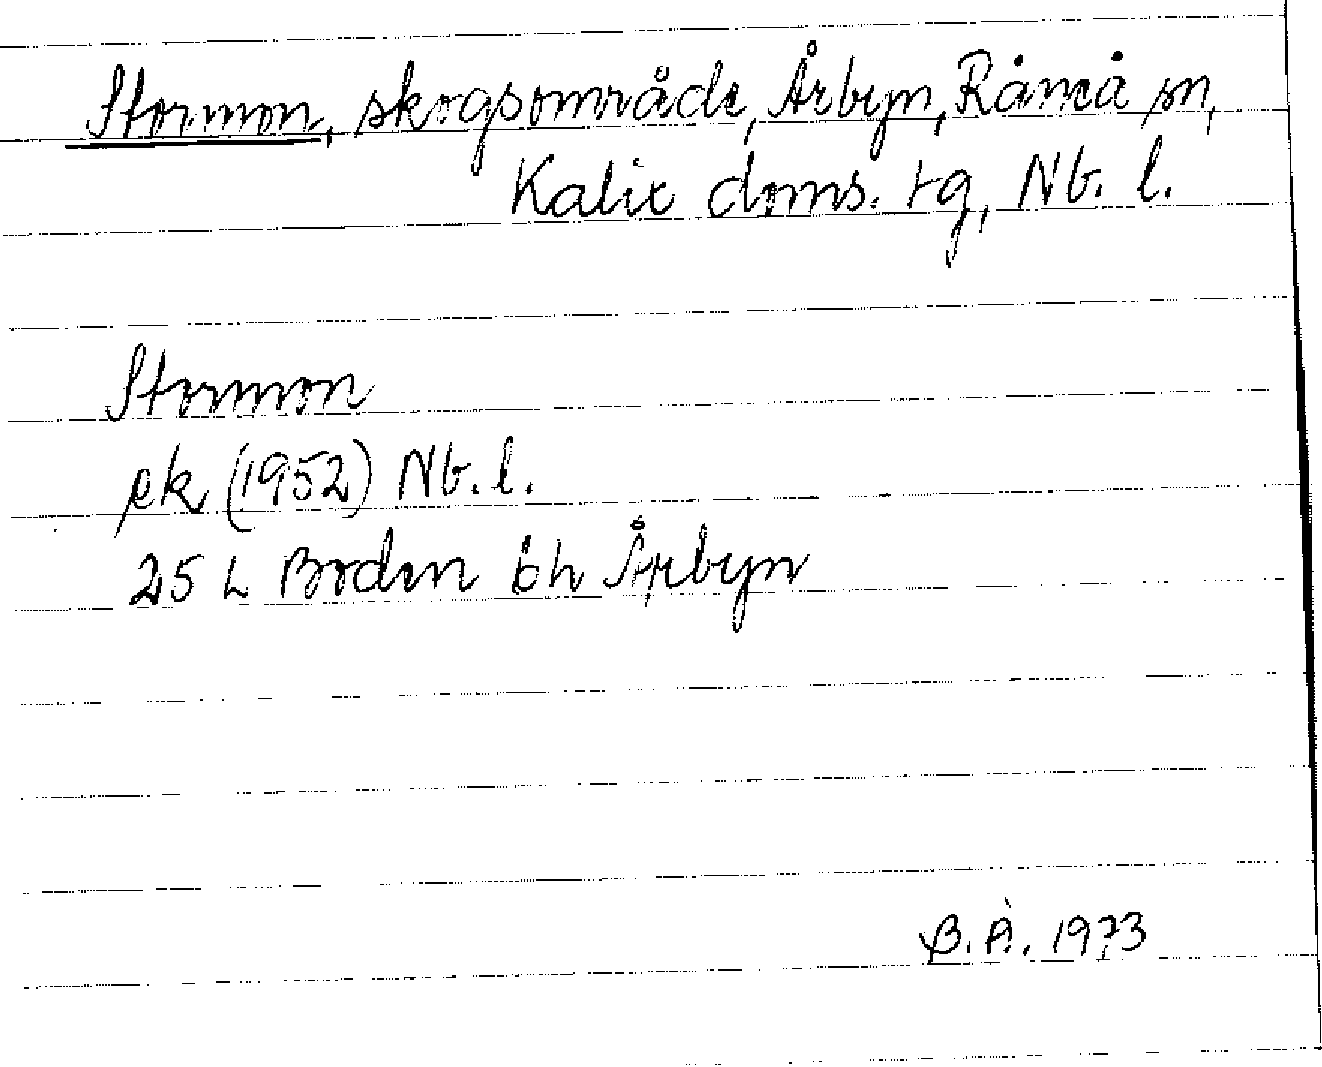 Stormon, skogsområde, Årbyn, Råneå sn,
Kalix doms. tg, Nb. l.
Stormon
ek (1952) Nb. l.
25 L Boden öh Årbyn
B. Å. 1973